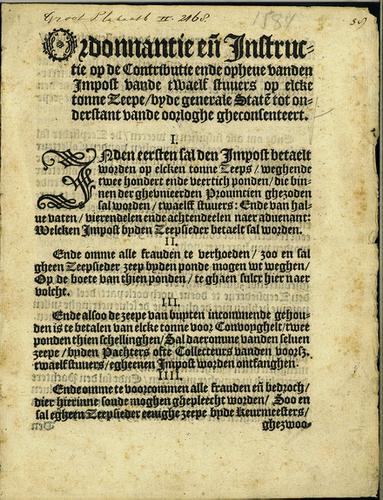 Groot Plakaatb II. 2168.
1584
Ordonnantie eñ Instruc-
tie op de Contributie ende opheue vanden
Impost vande twaelf stuuers op elcke
tonne Zeepe / byde generale Statẽ tot on-
derstant vande oorloghe gheconsenteert.
I.
INden eersten sal den Impost betaelt
worden op elcken tonne Zeeps / weghende
twee hondert ende veertich ponden / die bin-
nen der ghevnieerden Prouintien ghezoden
sal worden / twaelff stuuers: Ende van hal-
ue vaten / vierendelen ende achtendeelen naer aduenant:
Welcken Impost byden Zeepsieder betaelt sal worden.
II.
Ende omme alle frauden te verhoeden / zoo en sal
gheen Zeepsieder zeep byden ponde mogen wt weghen /
Op de boete van thien ponden / te ghaen sulcx hier naer
volcht.
III.
Ende alsoo de zeepe van buyten incommende gehou-
den is te betalen van elcke tonne voor Convoyghelt / twee
ponden thien schellinghen / Sal daeromme vanden seluen
zeepe / byden Pachters ofte Collecteurs vanden voorsz.
twaelf stuuers / egheenen Impost worden ontfanghen.
IIII.
Ende omme te voorcommen alle frauden eñ bedroch /
dier hierinne soude moghen ghepleecht worden / Soo en
sal egheen Zeepsieder eenighe zeepe byde Keurmeesters /
ghezwoo-